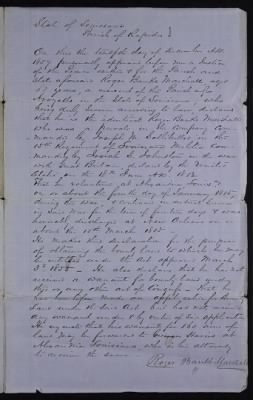 State of Louisiana
Parish of Rapides
On this the twelfth day of December A.D.
1857 personally appeared before me a Justice
of the Peace within & for the Parish and
State aforesaid Roger Banks Marshall aged
67 years, a resident of the Parish of
Avoyelles in the State of Louisiana, who
being duly sworn according to law, declares
that he is the identical Roger Banks Marshall
who was a private in the company com
manded by Joseph in the
Regiment of Louisiana Militia com
manded by Josiah S. Johnston in the war
with Great Britain declared by the United
States on the 18th June AD 1812
That he volunteered at Alexandria Louisa
on or about the fourth day of January 1815,
during the war & continued in actual service
in said war for the term of fourteen days & was
honorably discharged at New Orleans on or
about the 18th March 1815
He makes this declaration for the purpose
of obtaining the bounty land to which he may
be entitled under the act approved March
3d 1855 - He also declares that he has not
received a warrant for bounty land under
this or any other act of Congress - that he
has never before made an application for bounty
Land under the said Act
any warrant under & by virtue of
He requests that his warrant for 160 acres of
land may be forwarded to
Alexandria Louisiana who is his attorney
to receive the same
Roger Banks Marshall